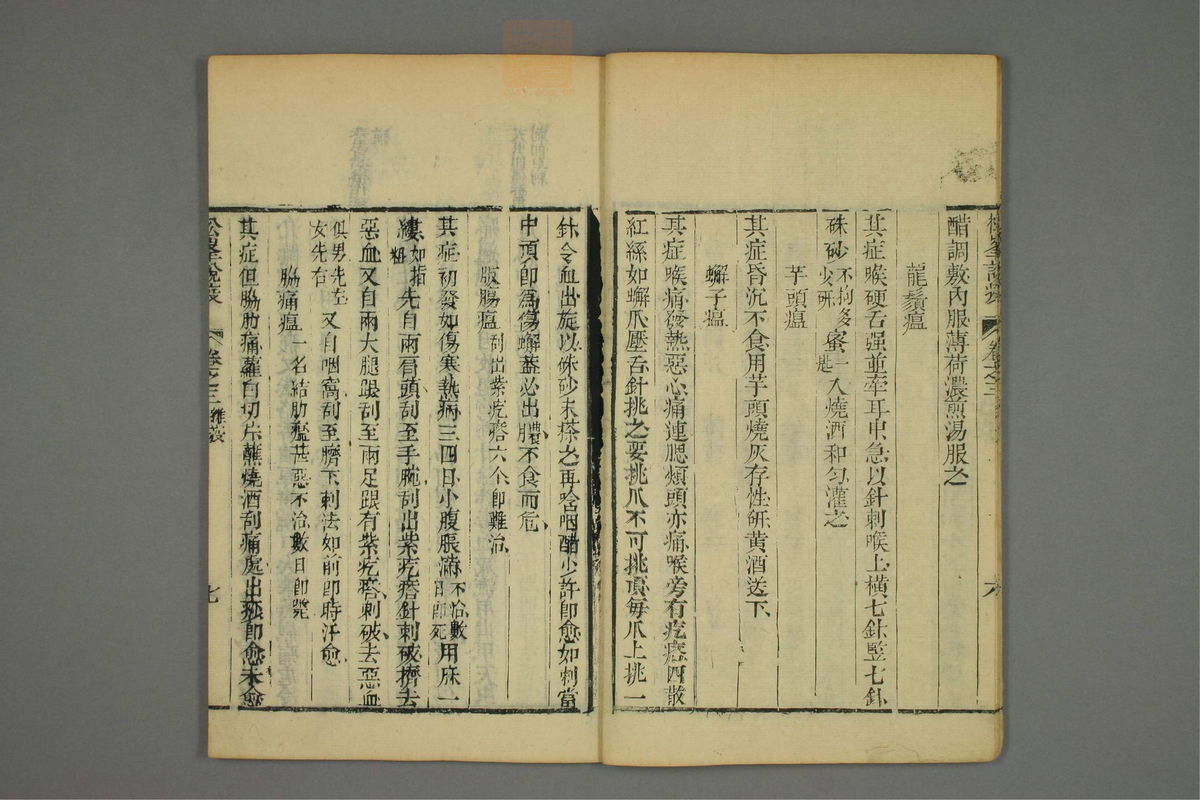 松峯說疫 卷之三 六
醋調敷內服薄荷濃煎湯服之
龍鬚瘟
其症喉硬舌强並牽耳中急以針刺喉上橫七針竪七針
硃砂不拘多少研蜜一匙入燒酒和勻灌之
芋頭瘟
其症昏沉不食用芋頭燒灰存性研黃酒送下
蠏子瘟
其症喉痛發熱惡心痛連腮頰頭亦痛喉旁有疙瘩四散
紅絲如蠏爪壓舌針挑之要挑爪不可挑頂每爪上挑一
針令血出旋以硃砂末搽之再啥咽醋少許即愈如刺當
中頂即為傷蠏葢必出膿不食而危
版腸瘟刮出紫疙瘩六个即難治
其症初發如傷寒熱病三四日小腹脹滿不治數日即死用麻一
縷如指粗先自兩肩頭刮至手腕刮出紫疙瘩針刺破擠去
惡血又自兩大腿跟刮至兩足跟有紫疙瘩刺破去惡血
俱男先左女先右又自咽窩刮至臍下刺法如前即時汗愈
脇痛瘟一名結肋瘟甚惡不治數日即斃
其症但脇肋痛蘿白切片蘸燒酒刮痛處出痧即愈未愈
松峯說疫 卷之三 雜疫 七